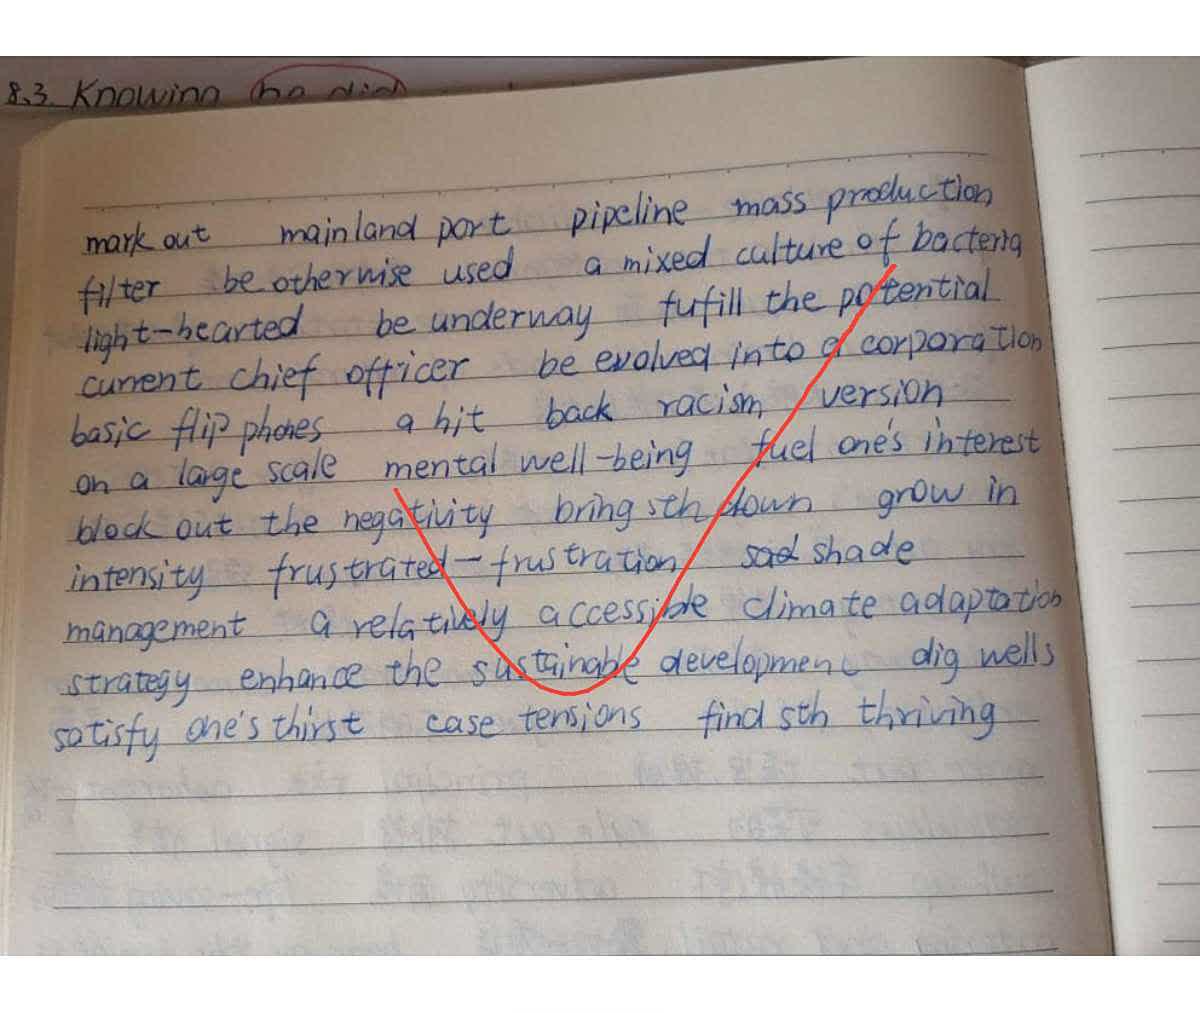 8.3. Knowing he did
mark out mainland port pipeline mass production
filter be otherwise used a mixed culture of bacteria
light-hearted be underway fufill the potential
current chief officer be evolved into a corporation
basic flip phones a hit back racism version
on a large scale mental well-being fuel one's interest
block out the negativity bring sth down grow in
intensity frustrated-frustration shade
management a relatively accessible climate adaptation
strategy enhance the sustainable development dig wells
satisfy one's thirst case tensions find sth thriving